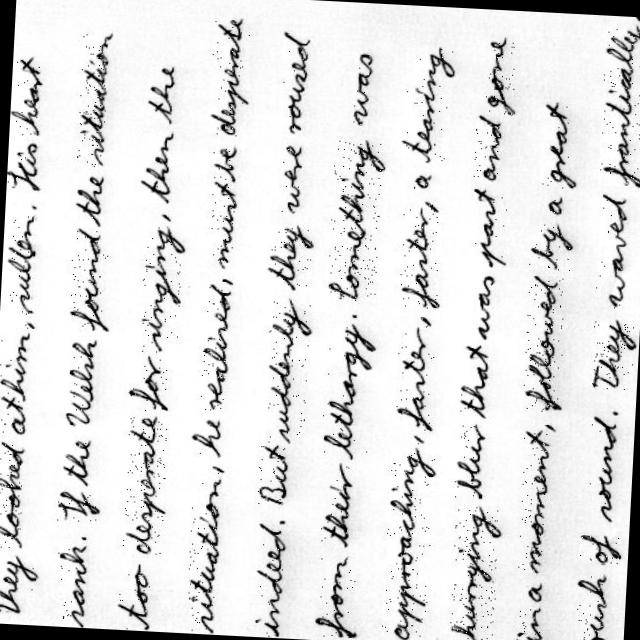 They looked at him, sullen. His heart
sank. If the Welsh found the situation
too desperate for singing, then the
situation, he realised, must be desperate
indeed. But suddenly they were roused
from their lethargy. Something was
approaching, faster, faster, faster, a tearing
hurrying blur that was past and gone
in a moment, followed by a great
of sound. They waved frantically,